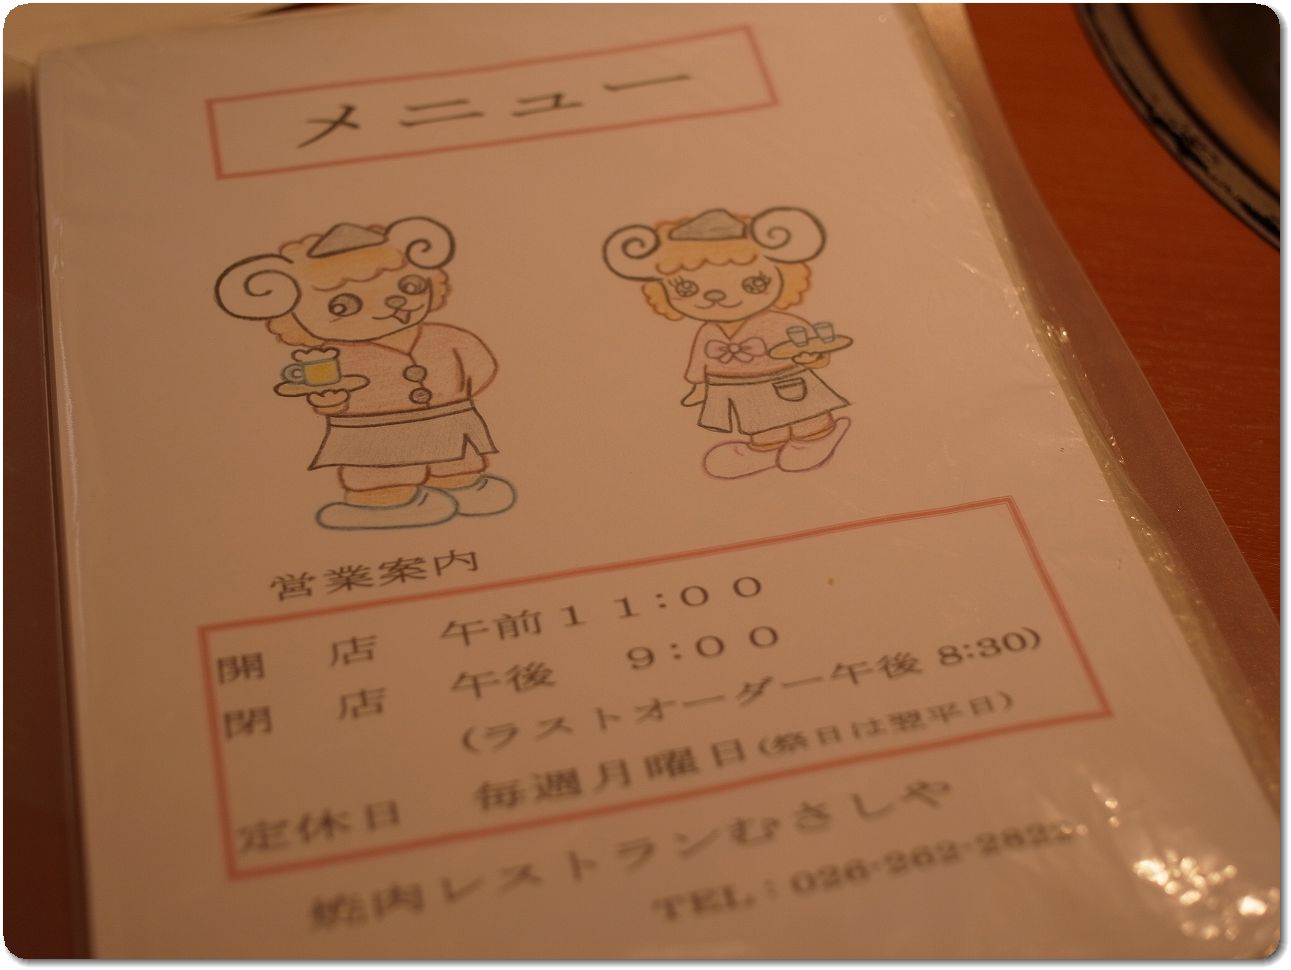 メニュー
営業案内
開　店　午前１１：００
閉　店　午後　９：００
(ラストオーダー午後 8:30)
定休日　毎週月曜日(祭日は翌平日)
焼肉レストランむさしや
TEL：026-262-2822